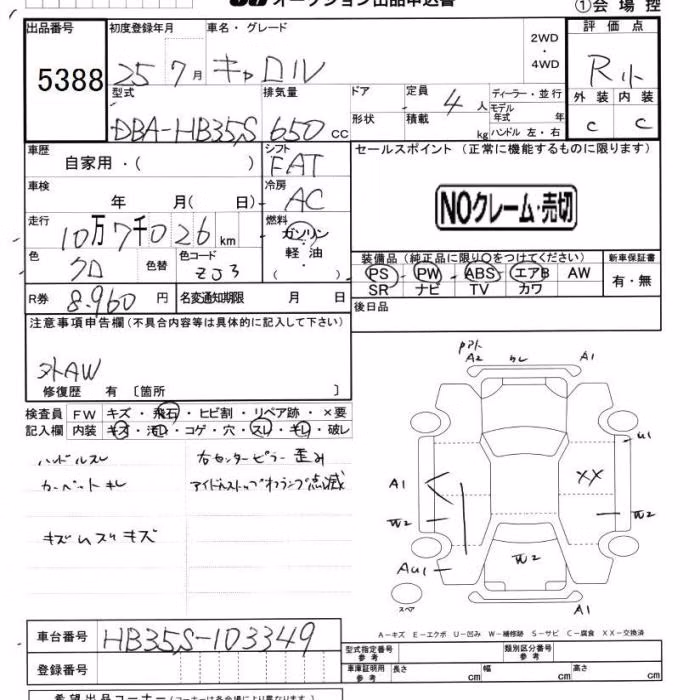 オークション出品申込書
①会場控
出品番号 初度登録年月 車名・グレード 2WD・4WD 評価点
5388 25 7月 キャロル R小
型式 排気量 ドア 定員 ディーラー・並行 外装 内装
DBA-HB35S 650cc 形状 積載 4人 kg モデル年式 年 ハンドル 左・右 C C
車歴 自家用・( ) シフト FAT セールスポイント (正常に機能するものに限ります)
車検 年 月( 日) 冷房 AC
NOクレーム・売切
走行 10万7千026km 燃料 ガソリン 軽油 ( )
色 クロ 色替 色コード ZJ3
装備品 (純正品に限り○をつけてください) 新車保証書
PS PW ABS エアB AW 有・無
SR ナビ TV カワ
R券 8.960円 名変通知期限 月 日 後日品
注意事項申告欄 (不具合内容等は具体的に記入して下さい)
外AW
修復歴 有 〔箇所 〕
検査員 FW キズ・飛石・ヒビ割・リペア跡・×要
記入欄 内装 キズ・汚レ・コゲ・穴・スレ・キレ・破レ
ハンドルスレ 右センターピラー歪み
カーペットキレ アイドルストップオフランプ点滅
A2 A1
U1
A1 XX
W2 W2
W2
AU1
スペア A1
A-キズ E-エクボ U-凹み W-補修跡 S-サビ C-腐食 XX-交換済
車台番号 HB35S-103349
登録番号
型式指定番号 参考 類別区分番号 参考
車庫証明用 参考 長さ cm 幅 cm 高さ cm
希望出品コーナー (コーナーは各会場により異なります)